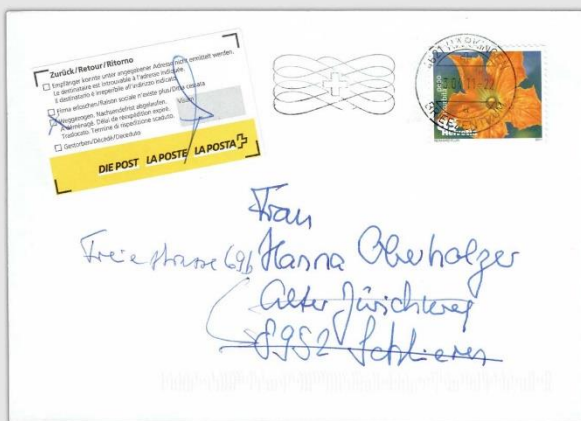 Zurück/Retour/Ritorno
Empfänger konnte unter angegebener Adresse nicht ermittelt werden.
Le destinataire est introuvable à l'adresse indiquée.
Il destinatario è irreperibile all'indirizzo indicato.
Firma erloschen/Raison sociale n'existe plus/Ditta cessata
Weggezogen. Nachsendefrist abgelaufen.
A déménagé. Délai de réexpédition expiré.
Traslocato. Termine di rispedizione scaduto.
Visum
Gestorben/Décédé/Deceduto
DIE POST LA POSTE LA POSTA
Helvetia
Frau
Freiestrasse 69b Hanna Oberholzer
Alter Zürichweg
8952 Schlieren